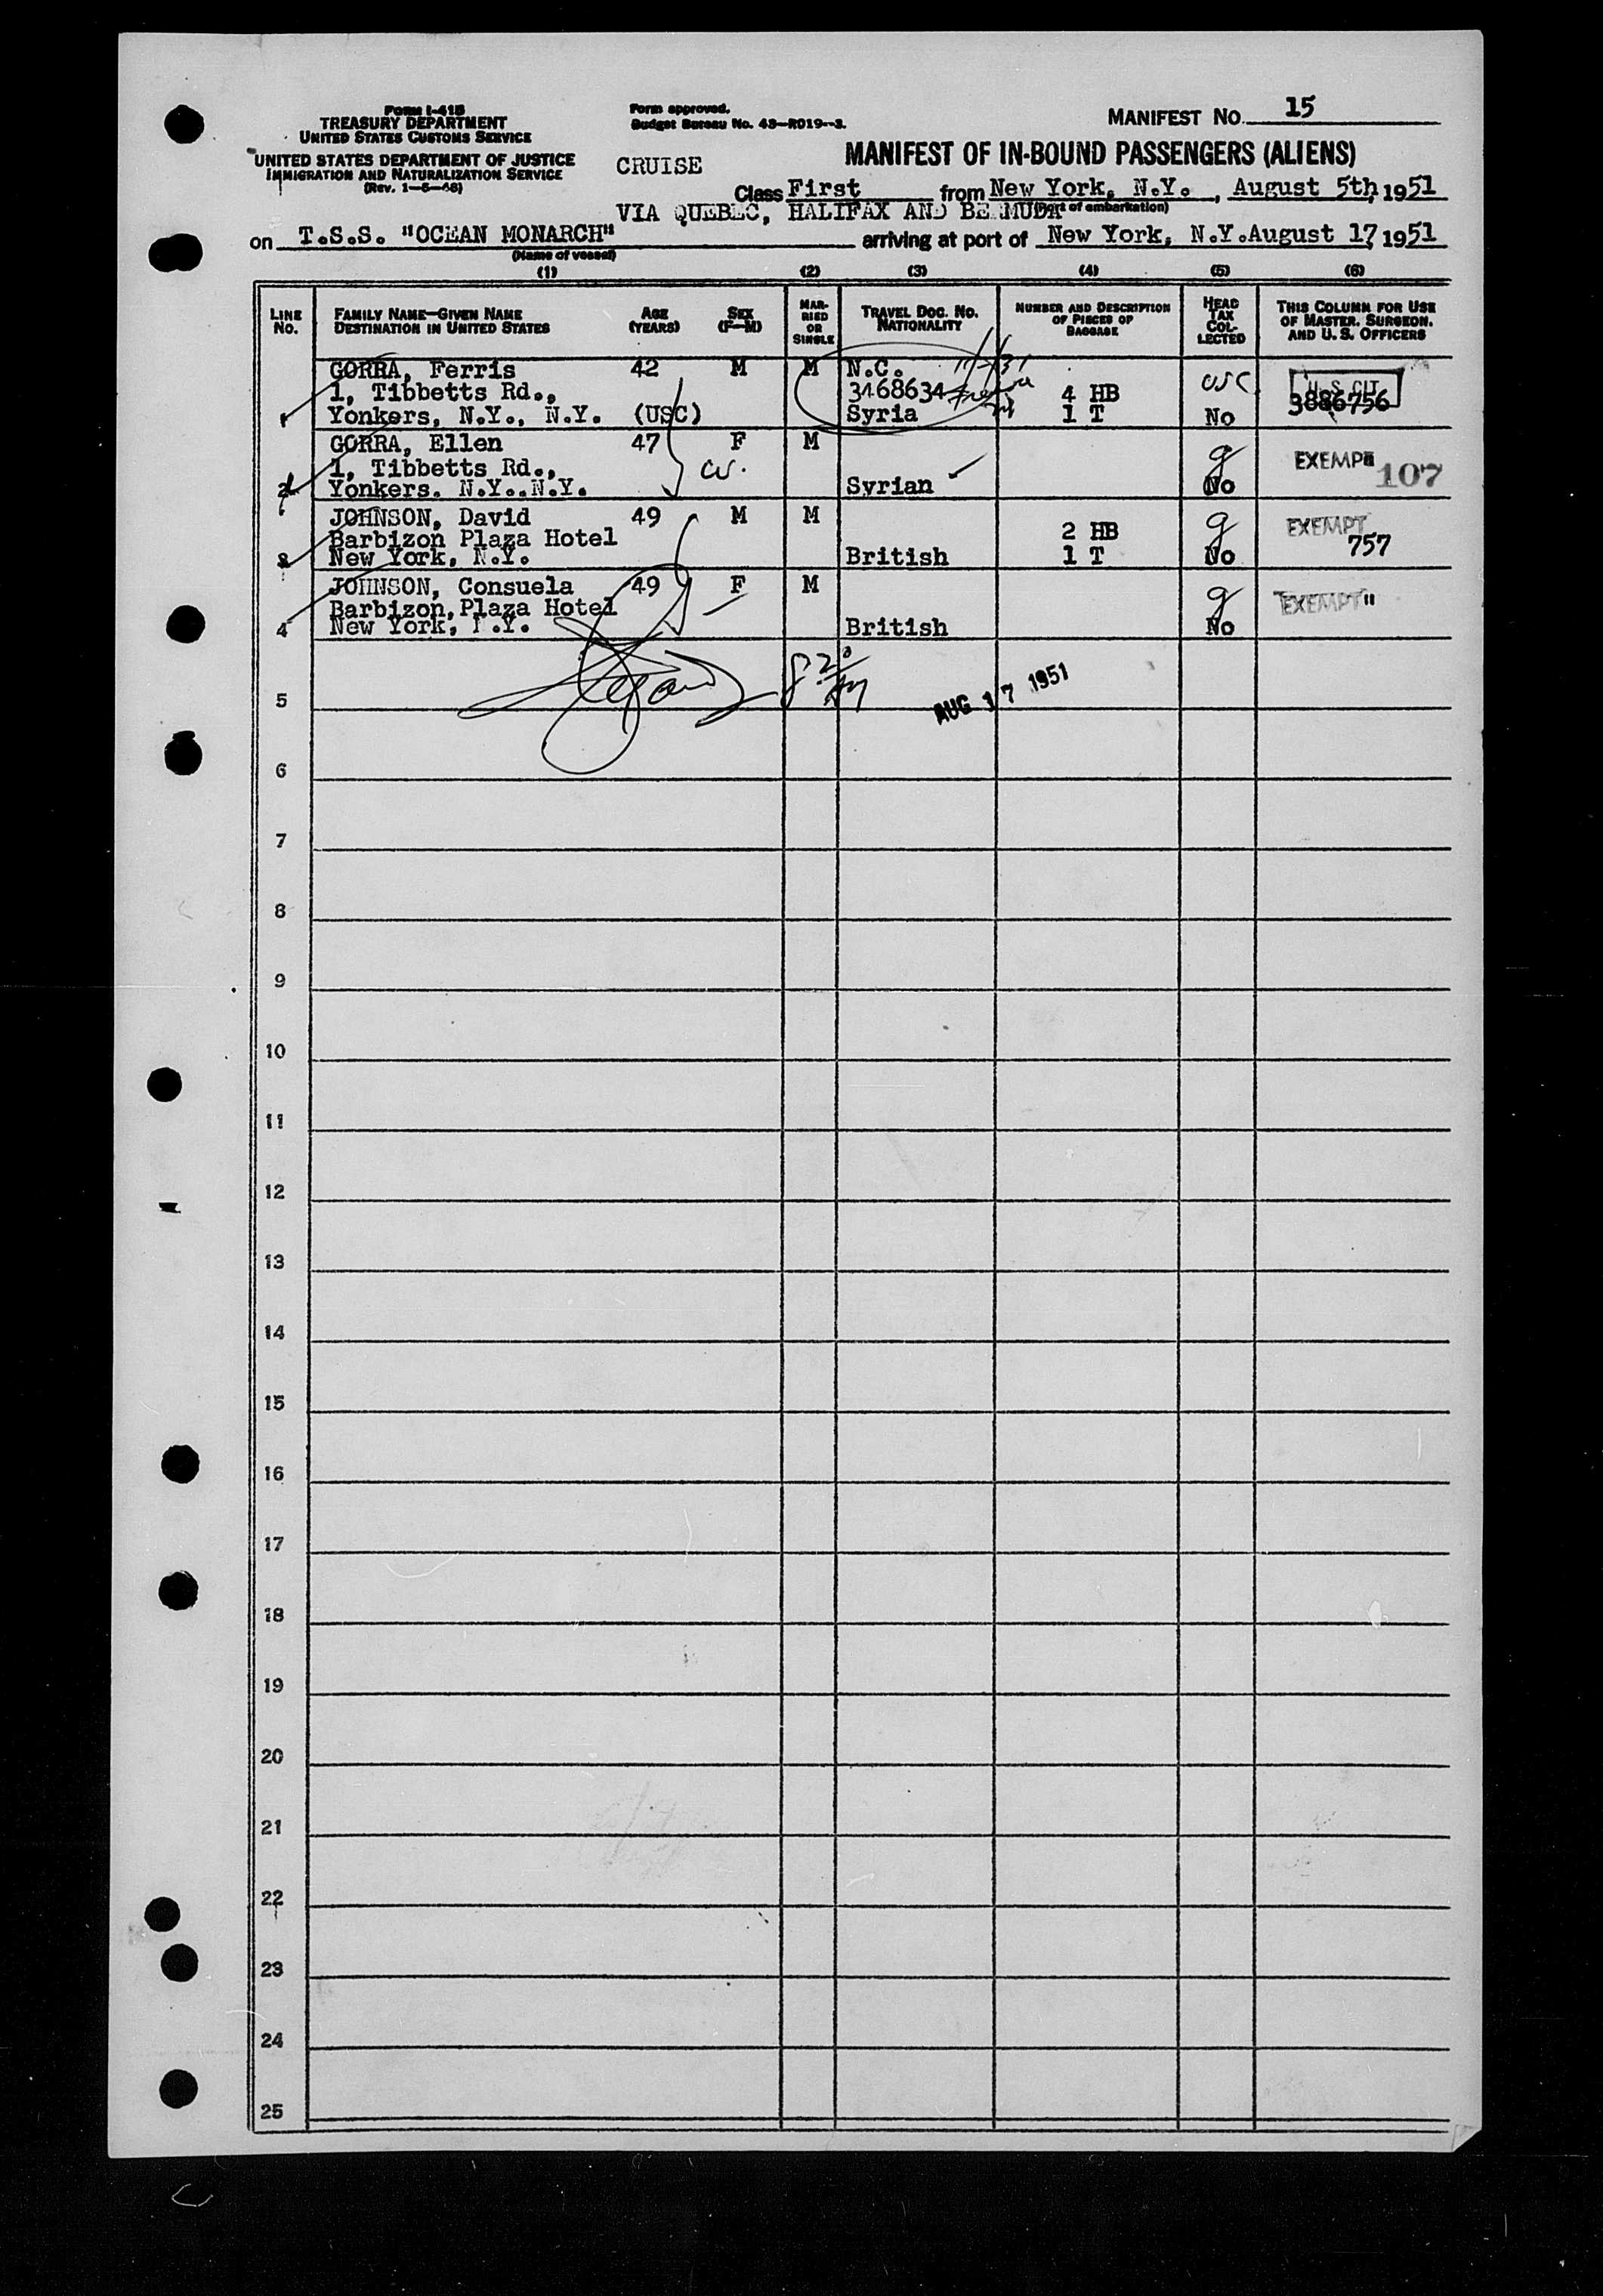 Form I-418
TREASURY DEPARTMENT
UNITED STATES CUSTOMS SERVICE
UNITED STATES DEPARTMENT OF JUSTICE
IMMIGRATION AND NATURALIZATION SERVICE
(Rev. 1-5-48)
Form approved.
Budget Bureau No. 43-R019--3.
MANIFEST No. 15
CRUISE
MANIFEST OF IN-BOUND PASSENGERS (ALIENS)
Class First from New York, N.Y., August 5th, 1951
VIA QUEBEC, HALIFAX AND BERMUDA (Port of embarkation)
on T.S.S. "OCEAN MONARCH" arriving at port of New York, N.Y. August 17, 1951
(Name of vessel)
(1) (2) (3) (4) (5) (6)
LINE No.
FAMILY NAME—GIVEN NAME
DESTINATION IN UNITED STATES
AGE (YEARS)
SEX (F—M)
MARRIED OR SINGLE
TRAVEL DOC. NO.
NATIONALITY
NUMBER AND DESCRIPTION OF PIECES OF BAGGAGE
HEAD TAX COLLECTED
THIS COLUMN FOR USE OF MASTER, SURGEON, AND U. S. OFFICERS
GORRA, Ferris 42 M M N.C.
1, Tibbetts Rd., 3468634 4 HB usc U. S. CIT.
1 Yonkers, N.Y., N.Y. (USC) Syria 1 T No 3886756
GORRA, Ellen 47 F M
1, Tibbetts Rd., g EXEMPT
2 Yonkers. N.Y..N.Y. Syrian No 107
JOHNSON, David 49 M M
Barbizon Plaza Hotel 2 HB g EXEMPT
3 New York, N.Y. British 1 T No 757
JOHNSON, Consuela 49 F M
Barbizon, Plaza Hotel g EXEMPT"
4 New York, N.Y. British No
AUG 17 1951
5
6
7
8
9
10
11
12
13
14
15
16
17
18
19
20
21
22
23
24
25